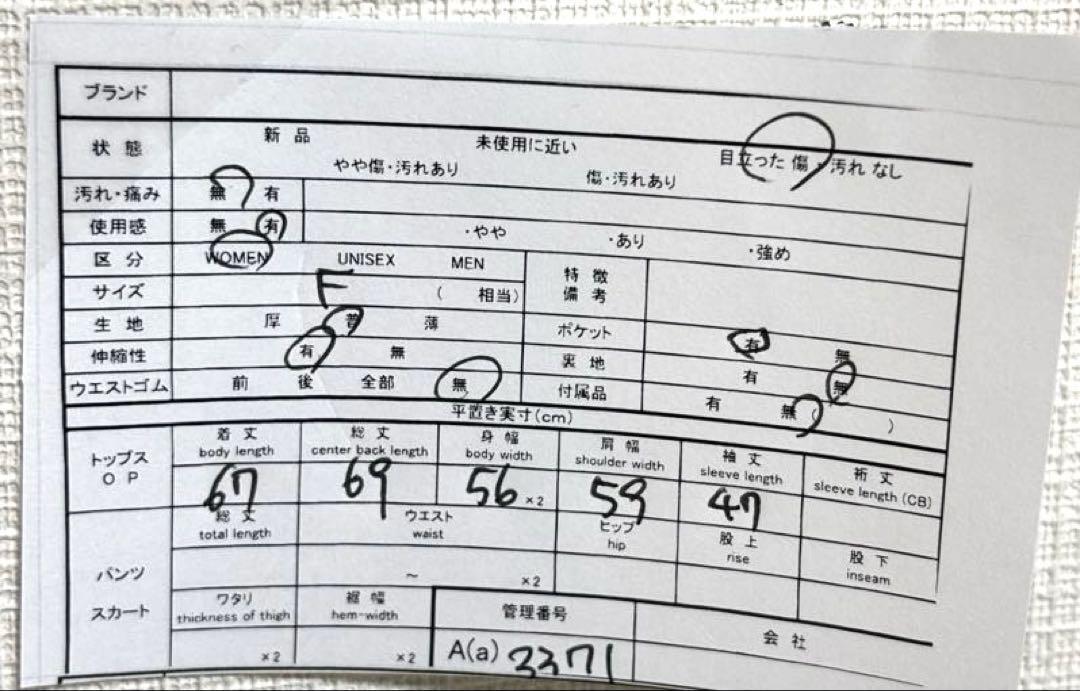 ブランド
状態 新品 未使用に近い 目立った傷・汚れなし
やや傷・汚れあり 傷・汚れあり
汚れ・痛み 無 有
使用感 無 有 ・やや ・あり ・強め
区分 WOMEN UNISEX MEN 特徴
備考
サイズ F ( 相当)
生地 厚 普 薄 ポケット 有 無
伸縮性 有 無 裏地 有 無
ウエストゴム 前 後 全部 無 付属品 有 無 ( )
平置き実寸(cm)
トップス
OP
着丈 総丈 身幅 肩幅 袖丈 裄丈
body length center back length body width shoulder width sleeve length sleeve length (CB)
67 69 56 ×2 59 47
総丈 ウエスト ヒップ 股上 股下
total length waist hip rise inseam
パンツ
～ ×2
スカート
ワタリ 裾幅 管理番号 会社
thickness of thigh hem-width
×2 ×2 A(a) 3371